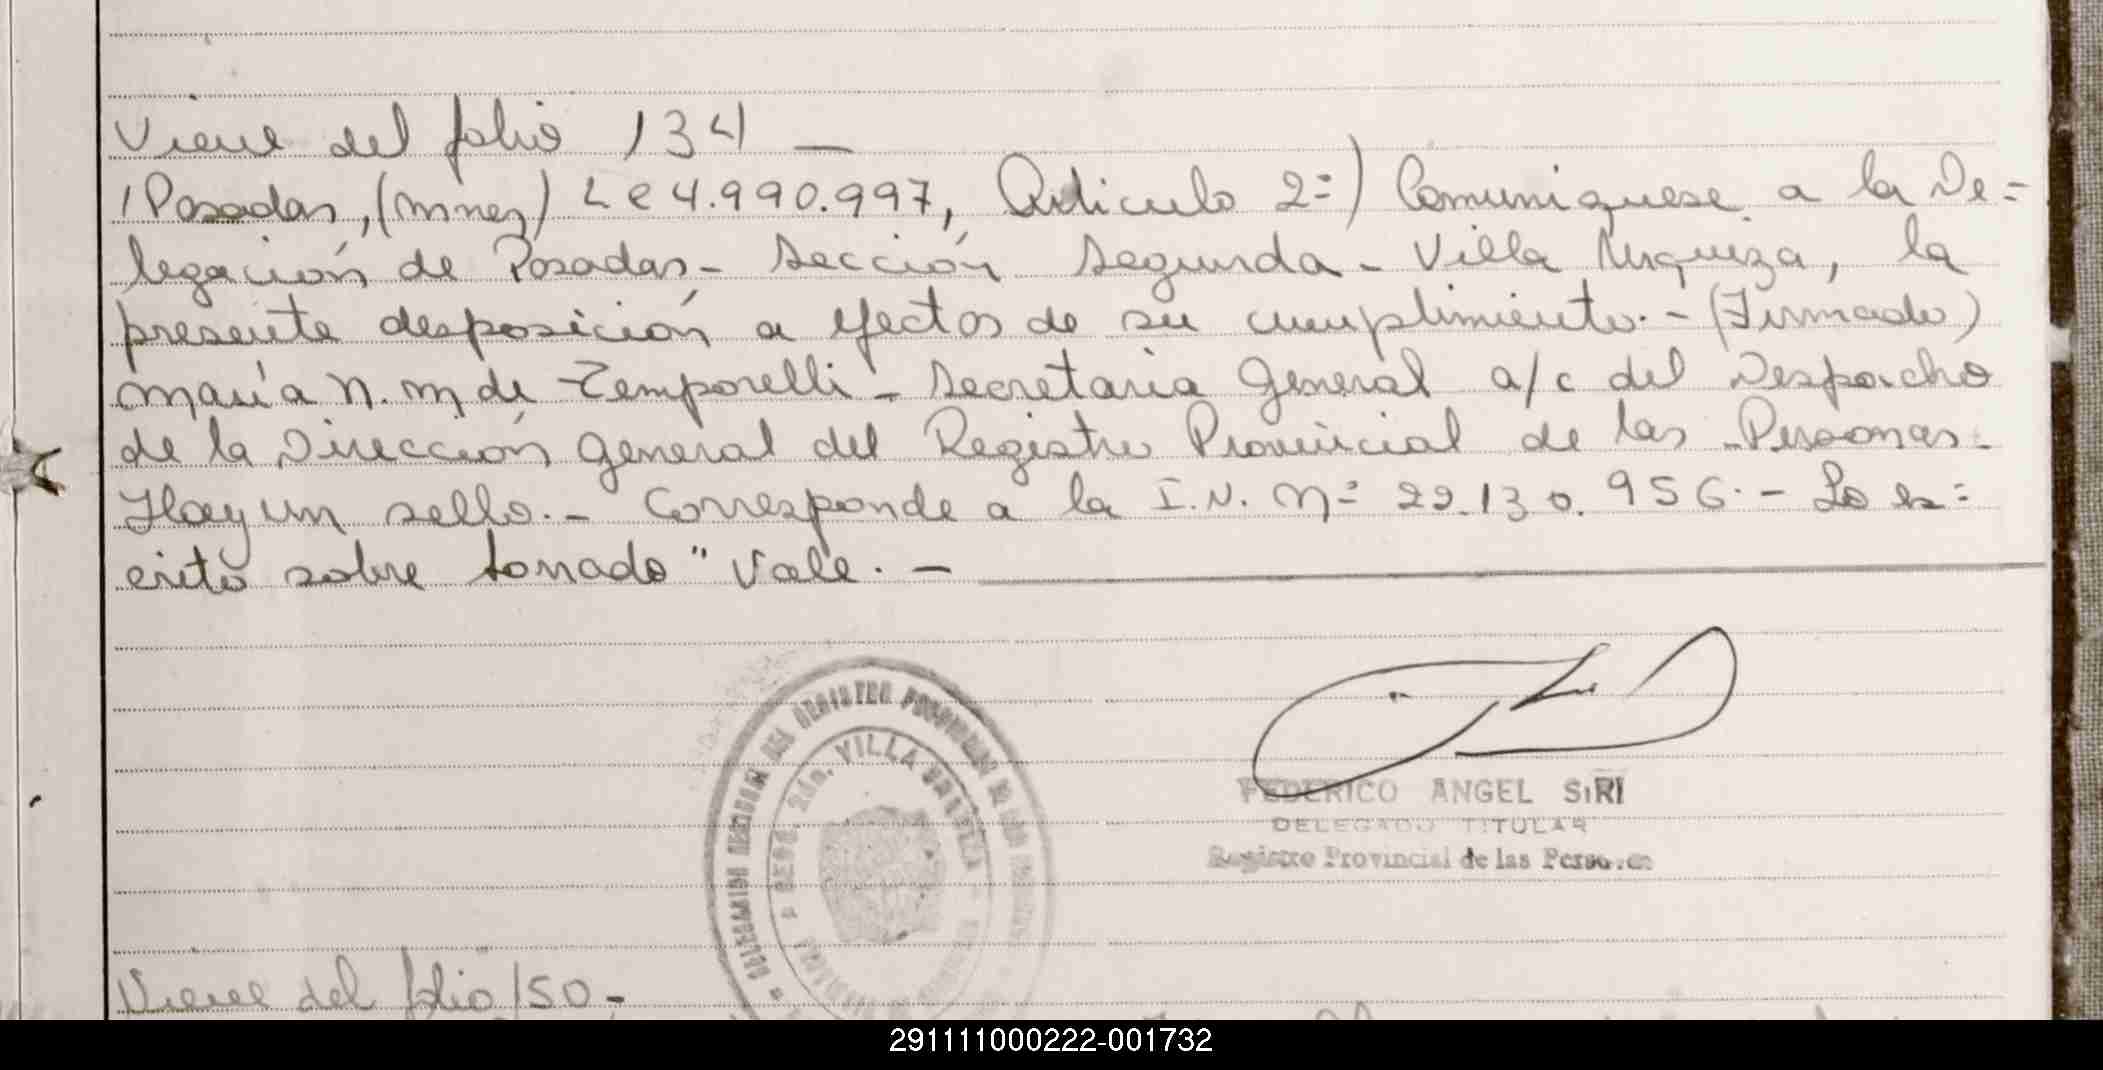 Viene del folio 134 —
/Posadas, (Mnes) L e 4.990.997, Articulo 2=) Comuniquese a la De=
legación de Posadas- Sección Segunda - Villa Urquiza, la
presente desposición a efectos de su cumplimiento.- (Firmado)
María N. M. de Temporelli - Secretaria General a/c del Despacho
de la Dirección General del Registro Provincial de las Personas.
Hay un sello. - Corresponde a la I.N. Nº 22.130.956. - Lo es=
crito sobre
"Vale. -
FEDERICO ANGEL SIRI
DELEGADO TITULAR
Registro Provincial de las Perso
DEL REGISTRO
VILLA URQUIZA
Viene del folio 150 -
291111000222-001732